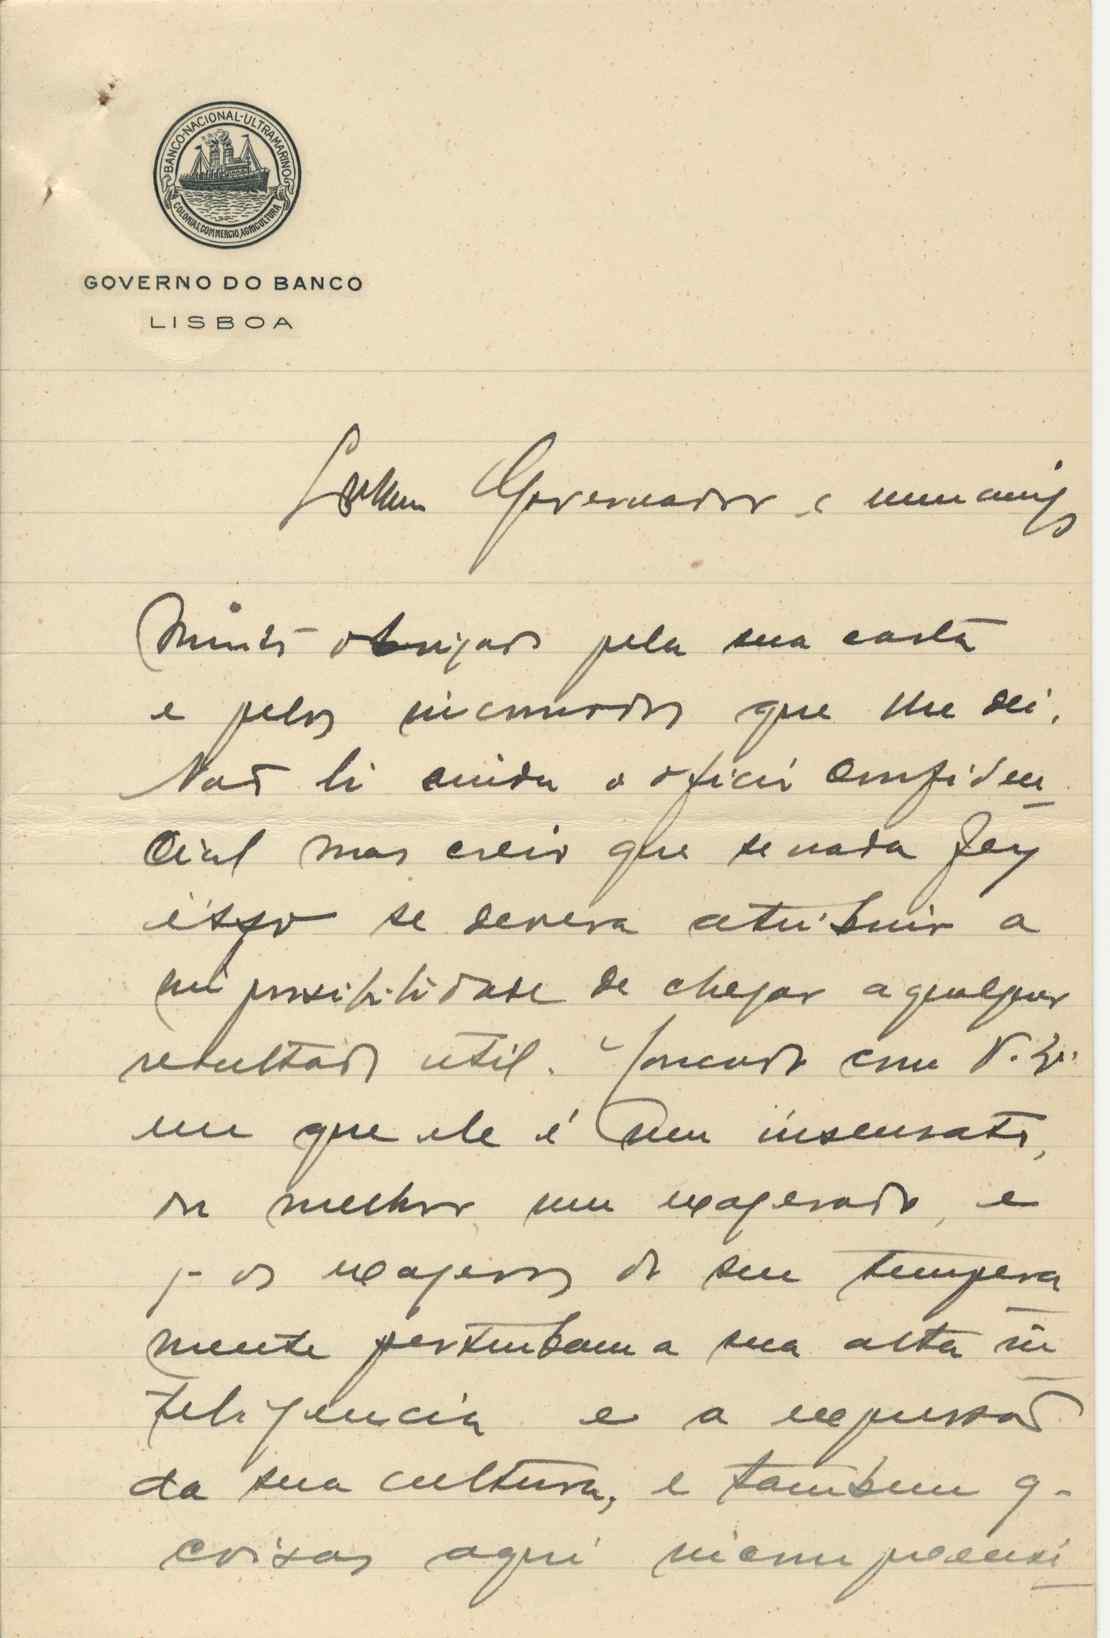 BANCO·NACIONAL·ULTRAMARINO
COLONIAL, COMMERCIO, AGRICULTURA
GOVERNO DO BANCO
LISBOA
Governador e meu amigo
Muito obrigado pela sua carta
e pelos incomodos que lhe dei.
Não li ainda o oficio confiden
cial mas creio que se nada fez
isso se devera atribuir a
impossibilidade de chegar a qualquer
resultado util. Concordo com V. Ex.
em que ele é um insensato,
ou melhor um exagerado, e
q- os exageros do seu tempera
mento perturbam a sua alta in
teligencia e a expressão
da sua cultura, e tambem q-
coisas aqui incompreensi